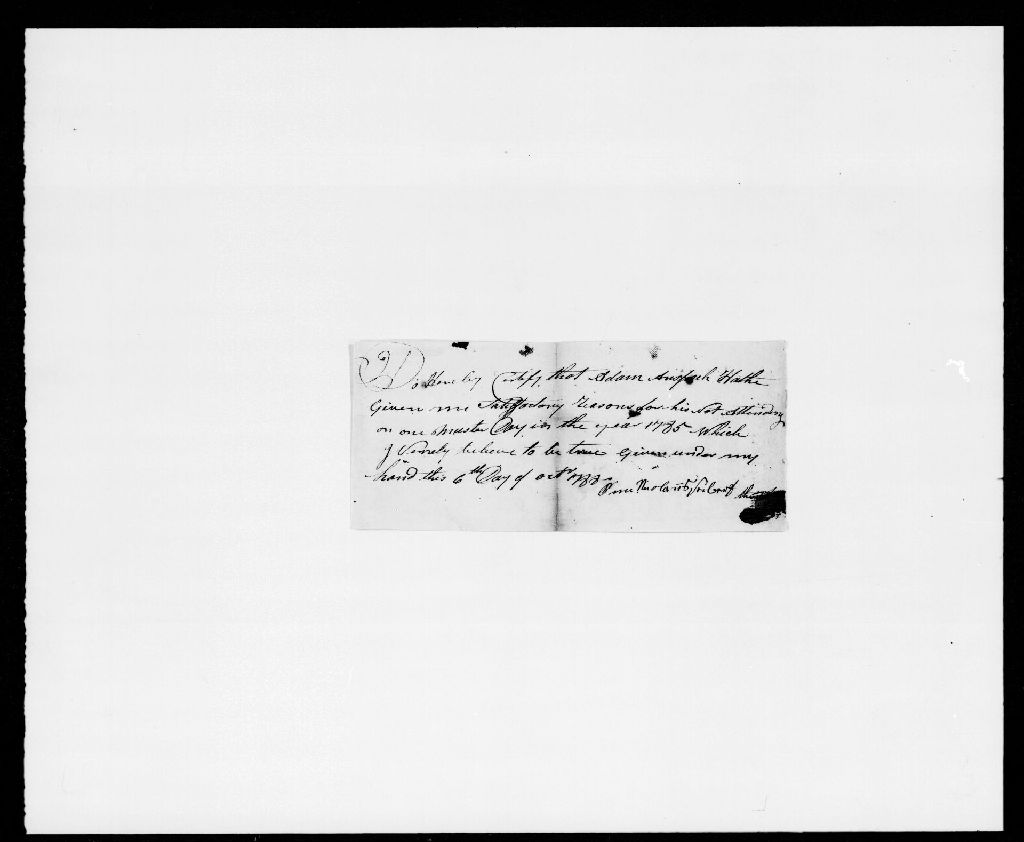 I Do Here by Certify that Adam Anspach Hathe
Given me Satisfactory Reasons for his Not Attending
on one Muster Day in the year 1785 Which
I Verrely believe to be true Given under my
hand this 6th Day of octr